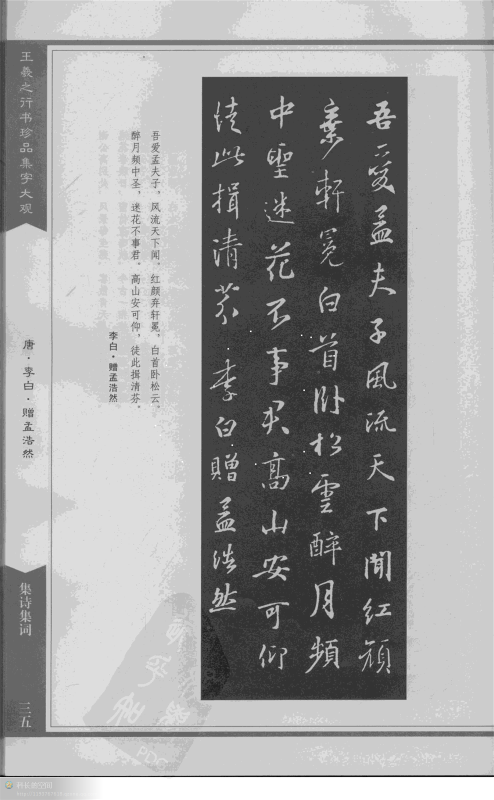 吾愛孟夫子風流天下聞紅顏
棄軒冕白首卧松雲醉月頻
中聖迷花不事君高山安可仰
徒此揖清芬·李白贈孟浩然
吾爱孟夫子，风流天下闻。红颜弃轩冕，白首卧松云。
醉月频中圣，迷花不事君。高山安可仰，徒此揖清芬。
李白·赠孟浩然
王羲之行书珍品集字大观
唐·李白·赠孟浩然
集诗集词
三五
PDG